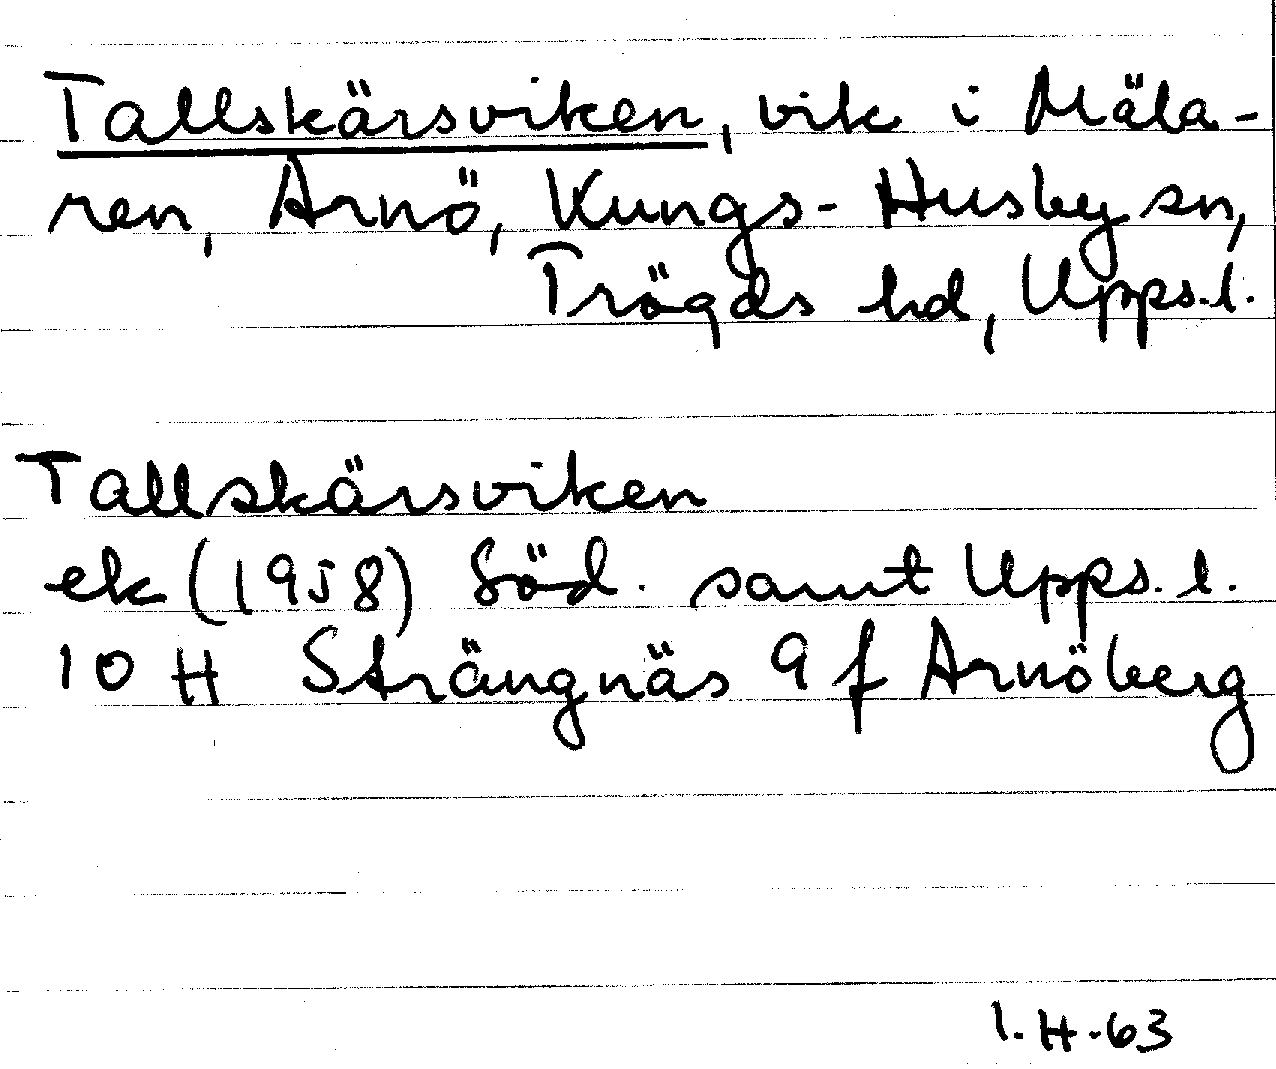 Tallskärsviken, vik i Mäla-
ren, Arnö, Kungs-Husby sn,
Trögds hd, Upps.l.
Tallskärsviken
ek (1958) Söd. samt Upps. l.
10 H Strängnäs 9 f Arnöberg
I.H.63